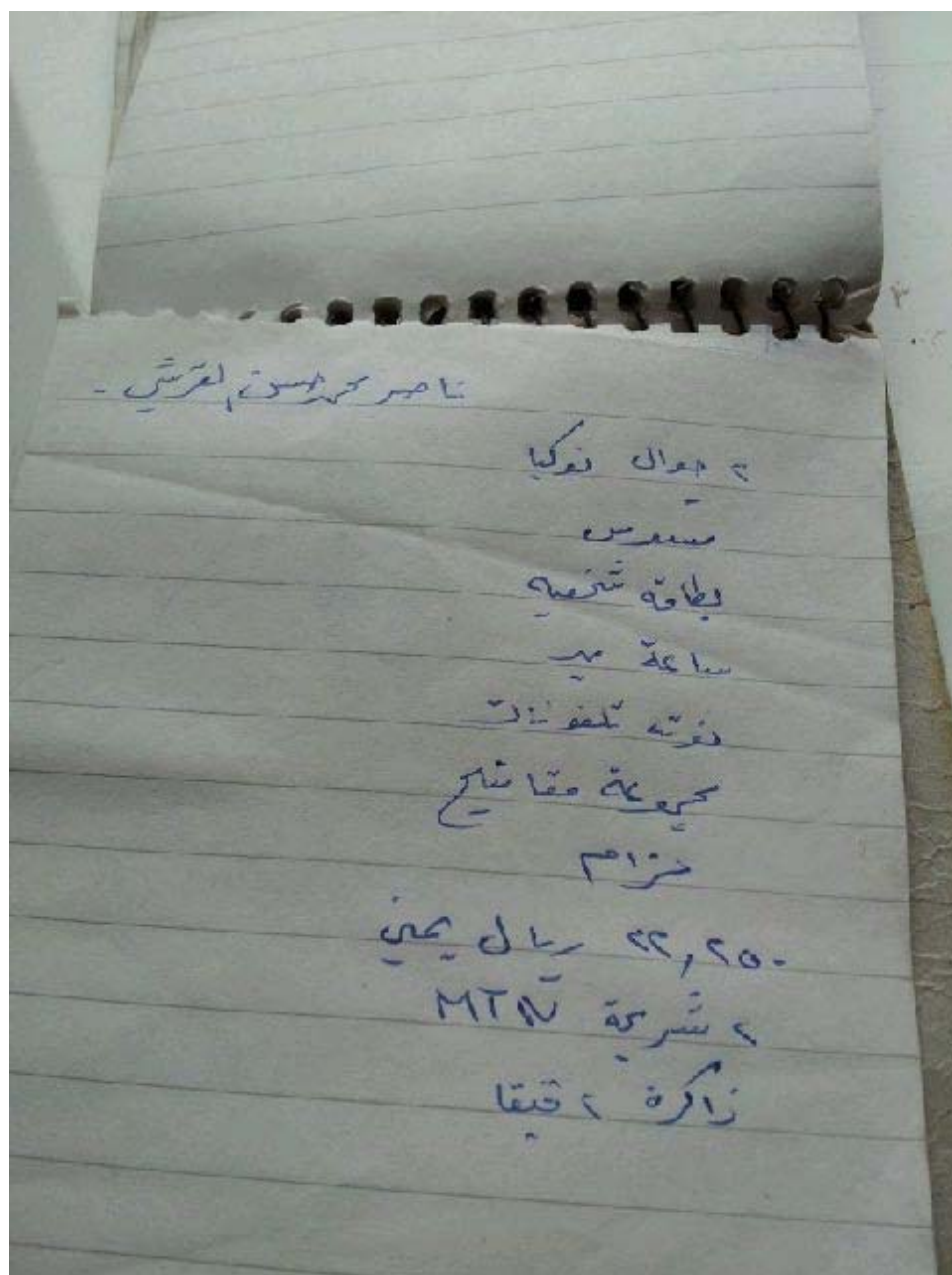 ناصر محمد حسن القرشي -
٢ جوال نوكيا
مسدس
بطاقه شخصيه
ساعة يد
نوته تلفونات
مجموعة مفاتيح
حزام
٢٢,٢٥٠ ريال يمني
٢ شريحة MTN
ذاكرة ٢ قيقا